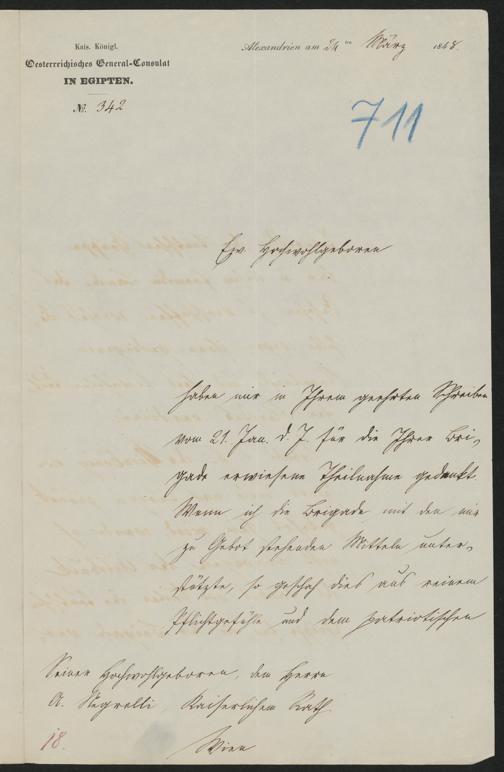 Kais. Königl.
Oesterreichisches General-Consulat
IN EGIPTEN.
№. 342
Alexandrien am 24ten März 1848.
711
Euer Hochwohlgeboren
haben mir in Ihrem geehrten Schreiben
vom 21. Jan. d. J. für die Ihrer Bri-
gade erwiesene Theilnahme gedankt.
Wenn ich die Brigade mit den mir
zu Gebot stehenden Mitteln unter-
stützte, so geschah dies aus reinem
Pflichtgefühle und dem patriotischen
Seiner Hochwohlgeboren, dem Herrn
A. Negrelli Kaiserlichen Rath
Wien
18.